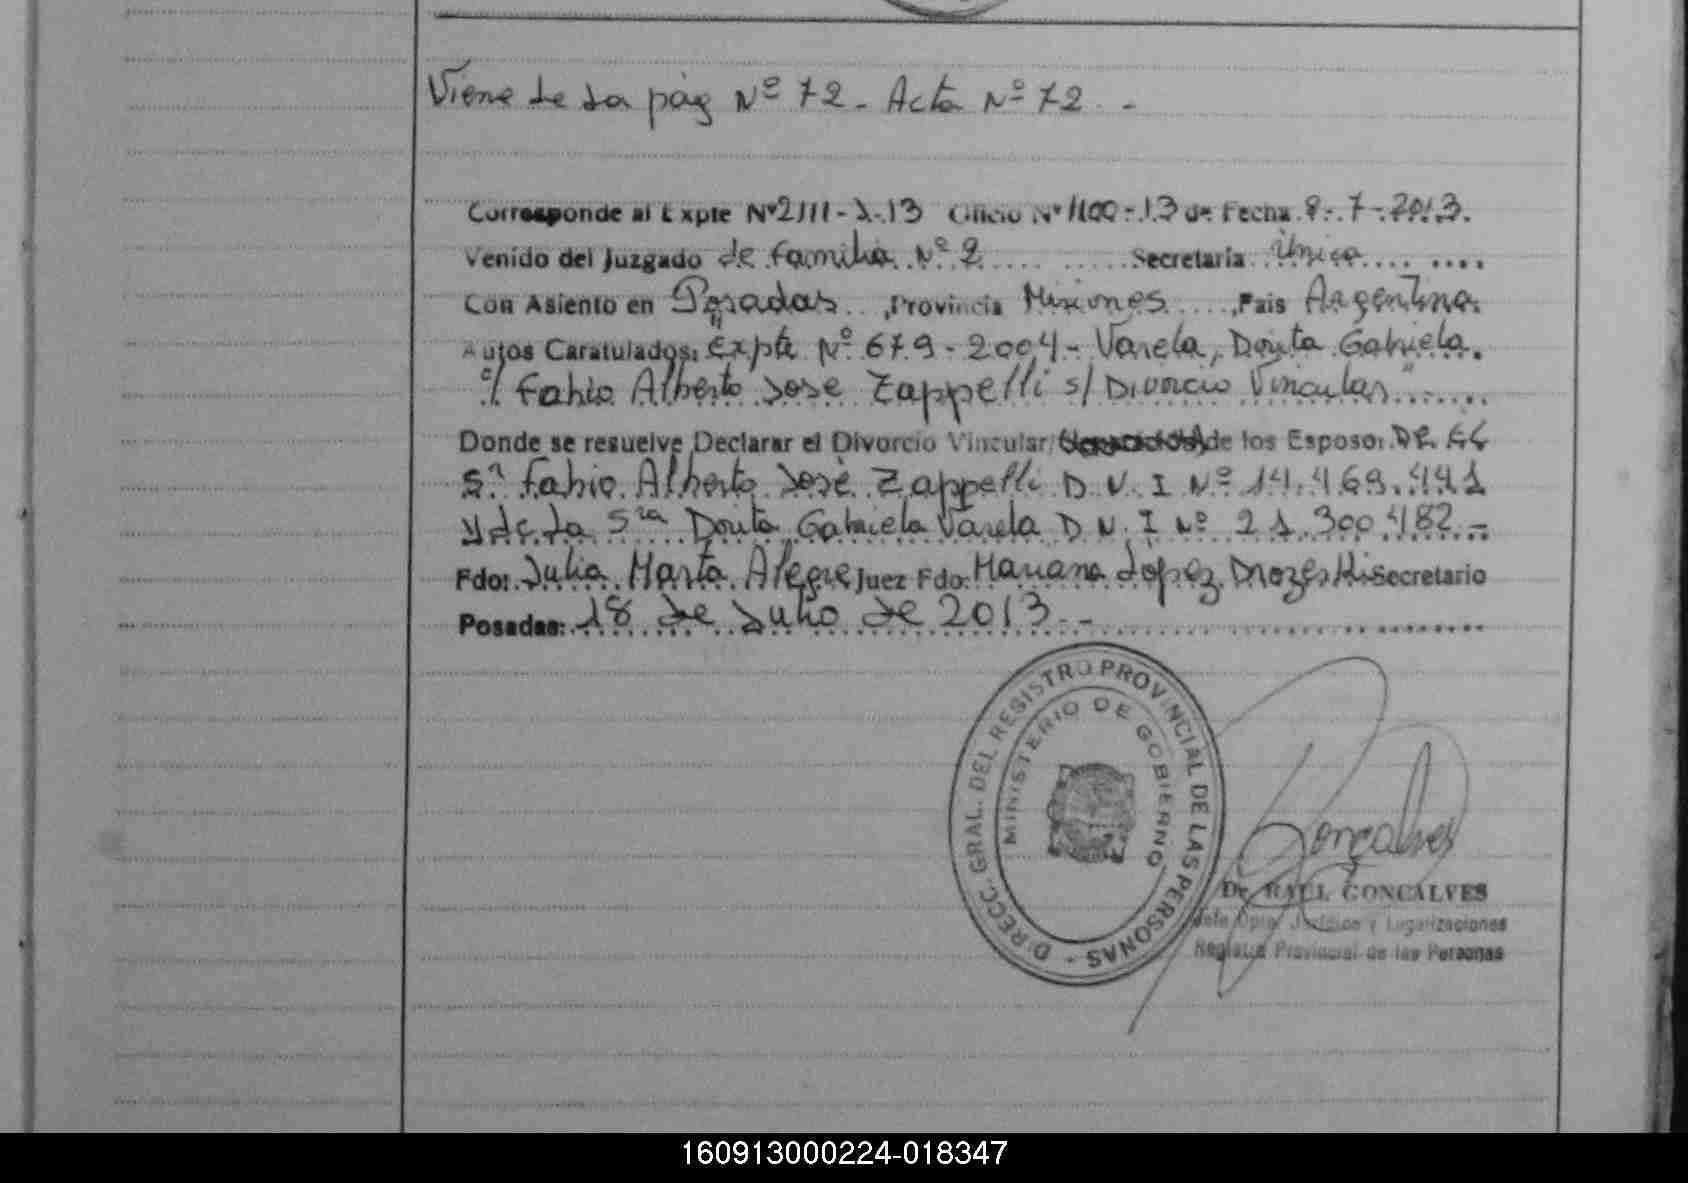 Viene de La pág Nº 72 - Acta Nº 72 -
Corresponde al Expte Nº 2111-J-13 Oficio Nº 1100-13 de Fecha 8-7-2013.
Venido del Juzgado de Familia Nº 2 Secretaria Única
Con Asiento en Posadas, Provincia Misiones, Pais Argentina.
Autos Caratulados: "Expte Nº 679-2004 - Varela, Dorita Gabriela
c/ Fabio Alberto Jose Zappelli s/ Divorcio Vincular"
Donde se resuelve Declarar el Divorcio Vincular/ de los Esposos
Sr Fabio Alberto José Zappelli D.N.I Nº 14.469.441
y de La Sra Dorita Gabriela Varela D.N.I Nº 21.300.482 -
Fdo: Julia Marta Alegre Juez Fdo: Mariana López Drozeski Secretario
Posadas: 18 de Julio de 2013 -
DIRECC. GRAL. DEL REGISTRO PROVINCIAL DE LAS PERSONAS -
MINISTERIO DE GOBIERNO
Gonçalves
Dr. RAUL GONCALVES
Jefe Dpto. Jurídico y Legalizaciones
Registro Provincial de las Personas
160913000224-018347